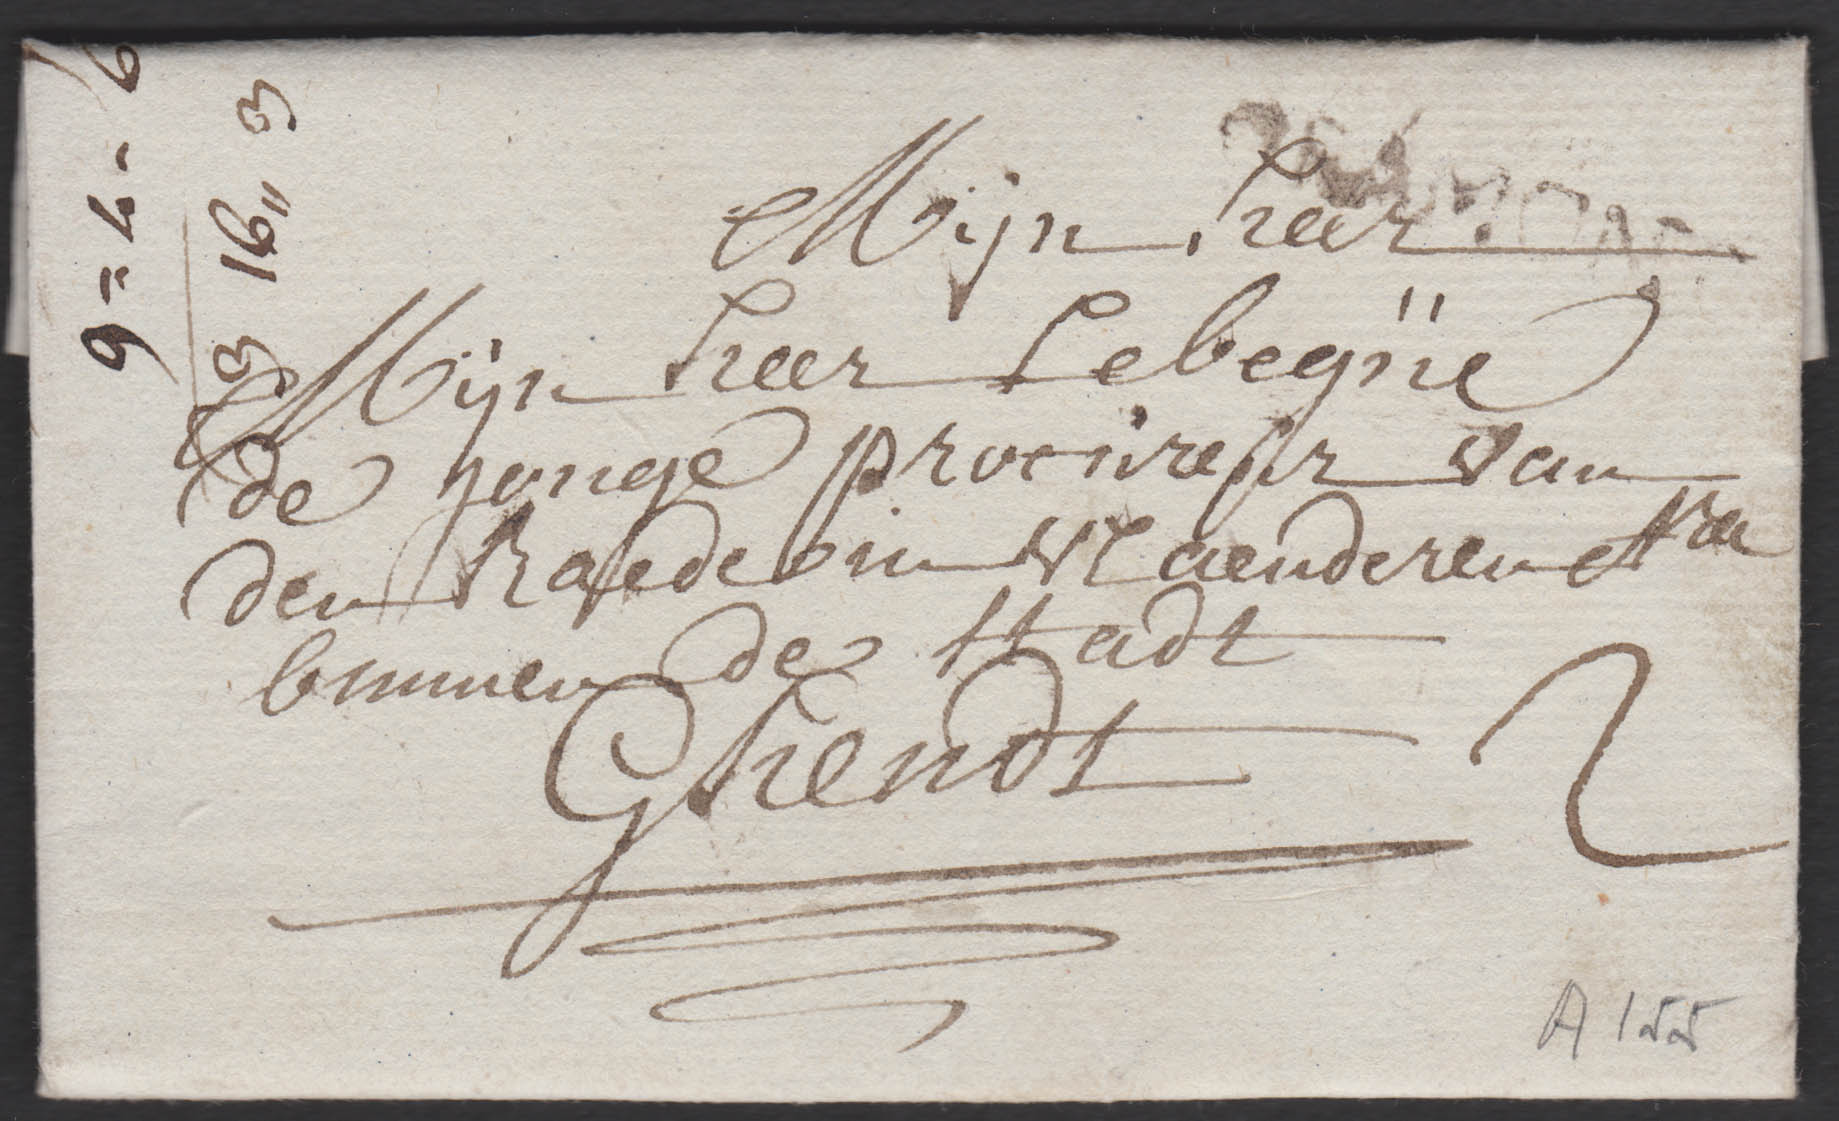 Mijn heer
Mijn heer Lebegüe
de jonge procureur van
den Raede in vlaenderen &tra
binnen de stadt
Ghendt
2
9 = 4 - 6
3 16,, 3
A 155